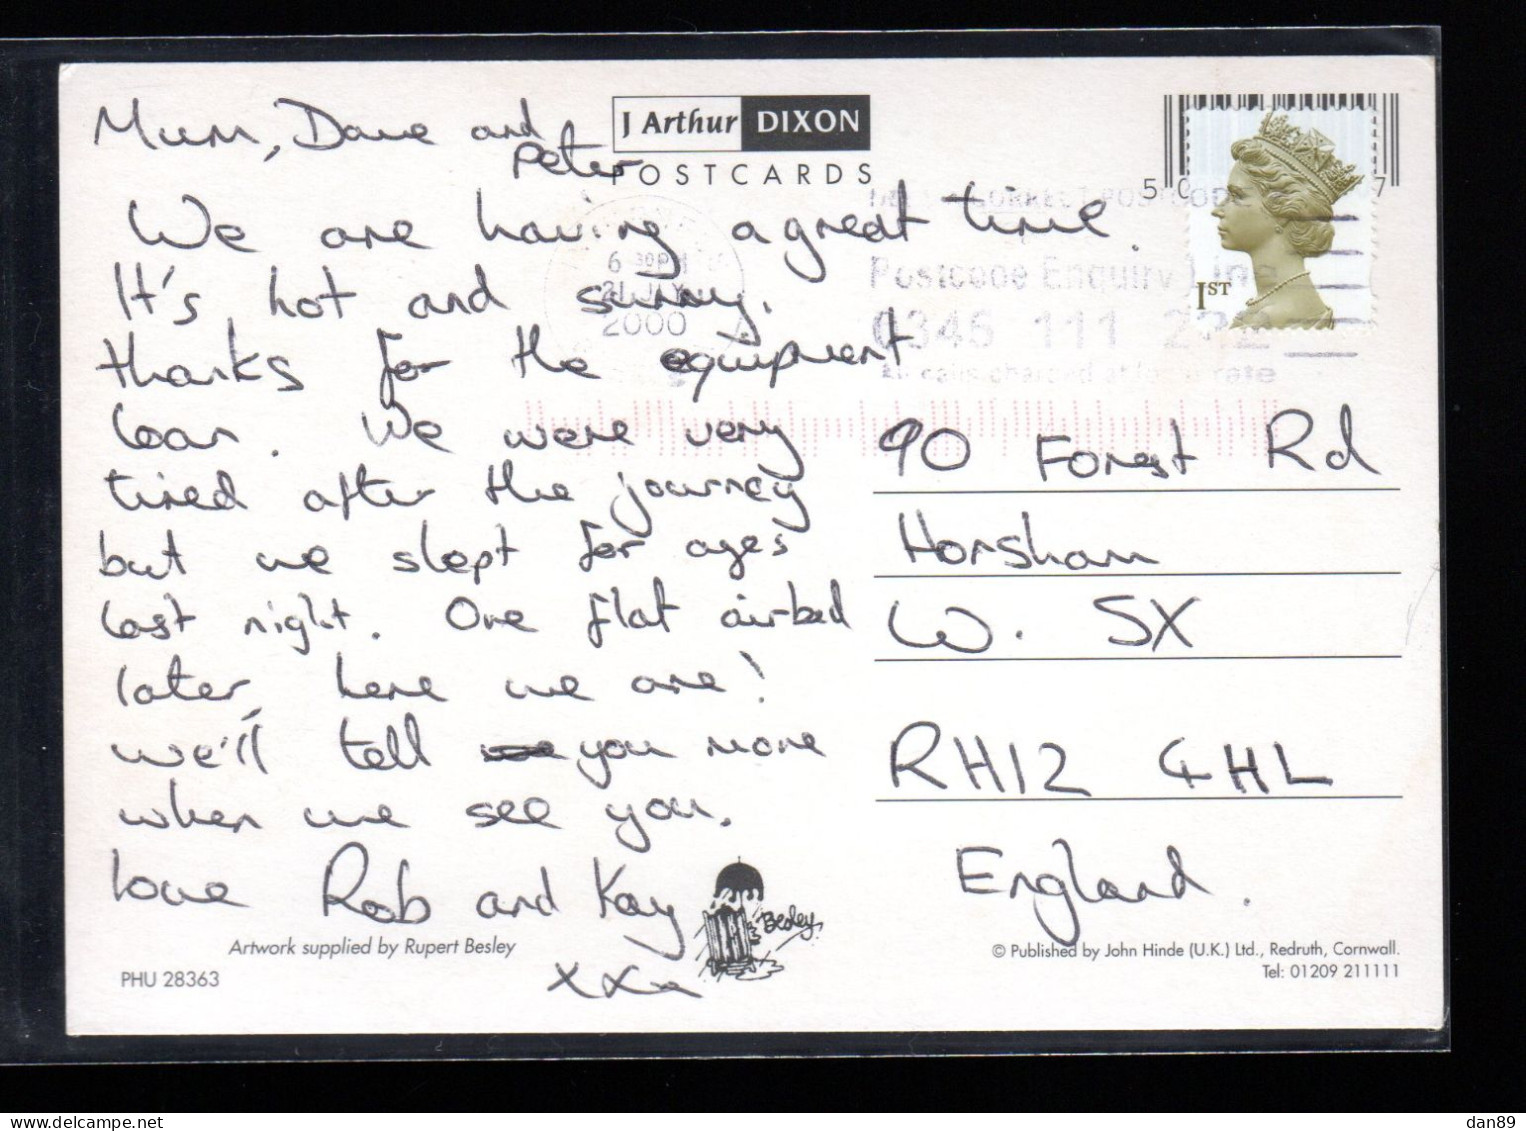 Mum, Dave and
Peter
We are having a great time.
It's hot and sunny.
thanks for the equipment
loan. We were very
tired after the journey
but we slept for ages
last night. One flat airbed
later, here we are!
we'll tell you more
when we see you.
love Rob and Kay
xxx
J Arthur DIXON
POSTCARDS
1ST
6 30PM
21 JLY
2000
CORRECT POSTCODE
Postcode Enquiry Line
0345 111 222
calls charged at local rate
90 Forest Rd
Horsham
W. SX
RH12 4HL
England.
Besley
Artwork supplied by Rupert Besley
PHU 28363
© Published by John Hinde (U.K.) Ltd., Redruth, Cornwall.
Tel: 01209 211111
dan89